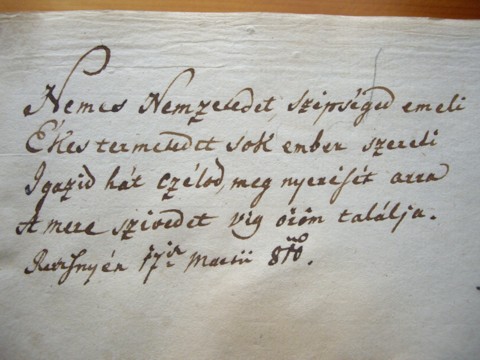 Nemes Nemzetedet, szépséged emeli
Ékes termetedet sok ember szereli
Igazid hát czélod, meg nyerésit arra
A mere szivedet vig öröm találja.
17 Martii